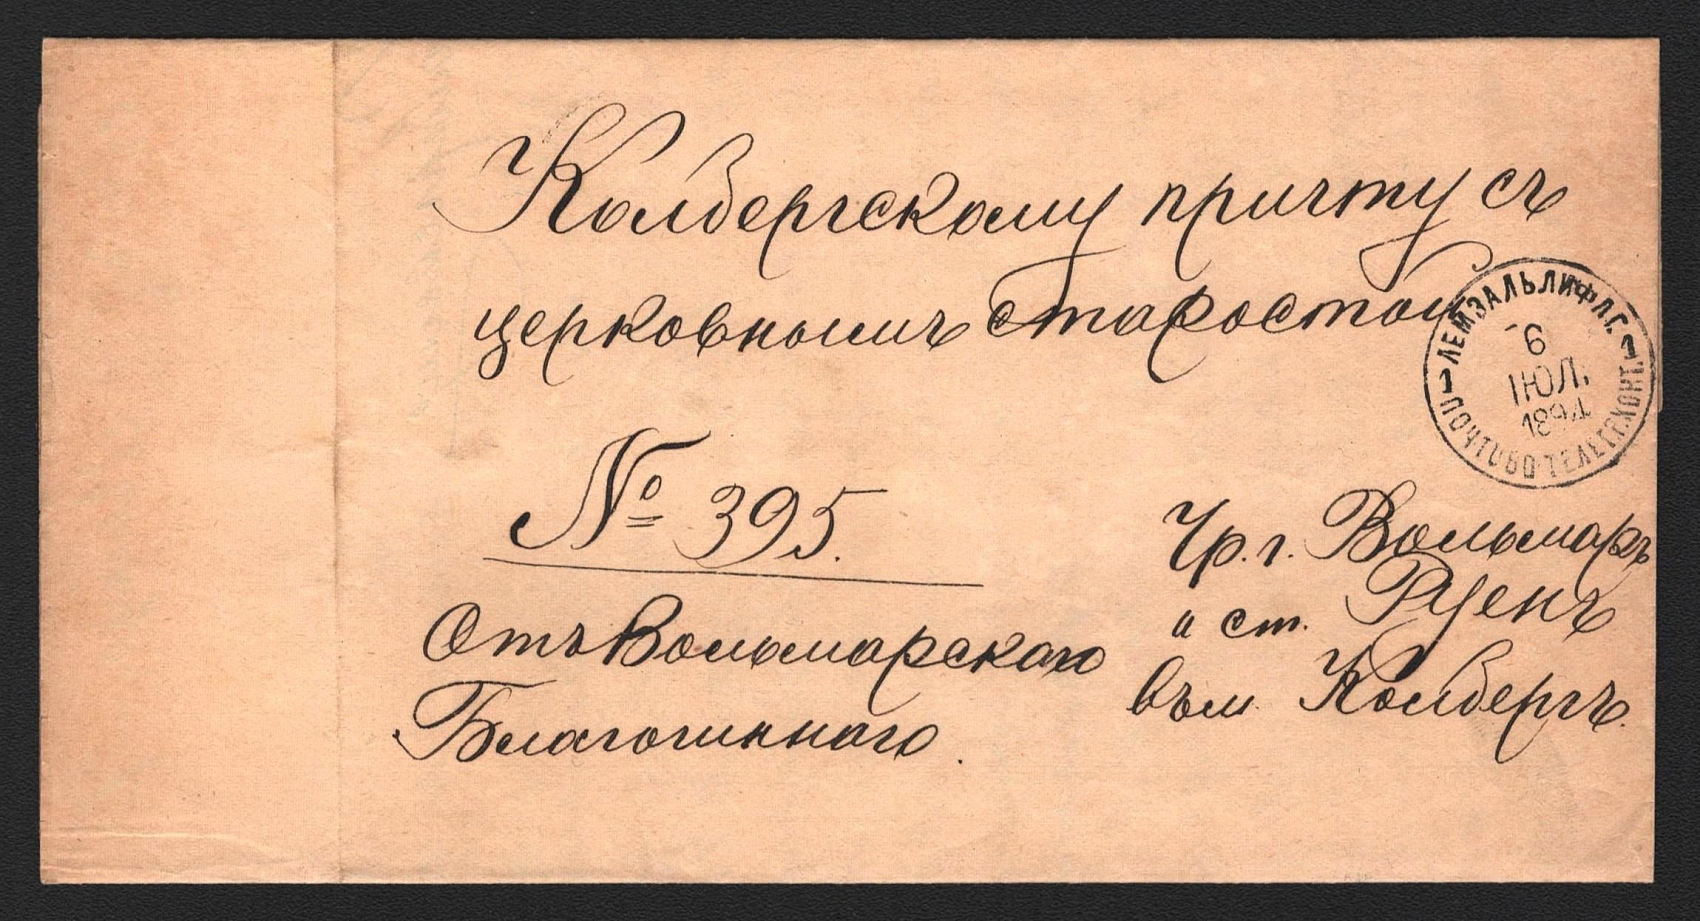 Колбергскому причту съ
церковнымъ старостой
ЛЕМЗАЛЬ ЛИФЛ. Г.
1 1
6
ІЮЛ.
1894
ПОЧТОВО ТЕЛЕГР. КОНТ.
№ 395.
Чр. г. Вольмаръ
и ст. Руенъ
въ м. Колбергъ.
Отъ Вольмарскаго
Благочиннаго.